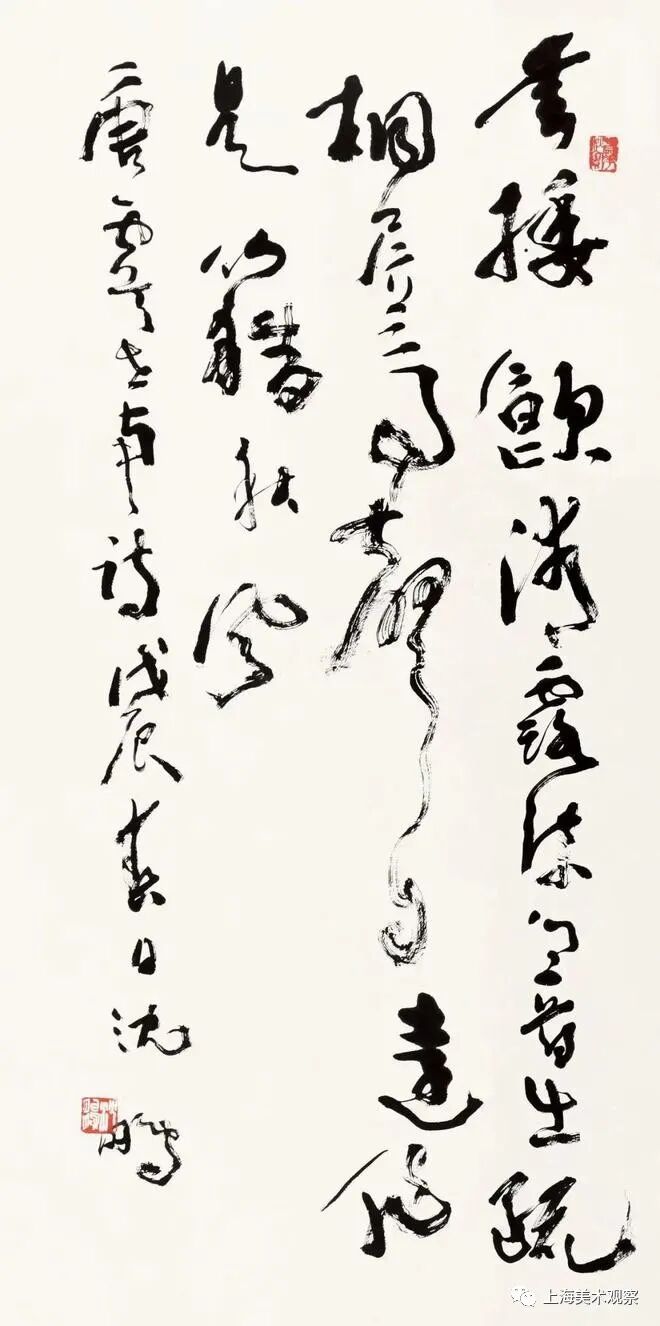 垂緌飲清露流響出疏
桐居高聲自遠非
是藉秋風
唐虞世南詩戊辰春日沈鵬
上海美术观察